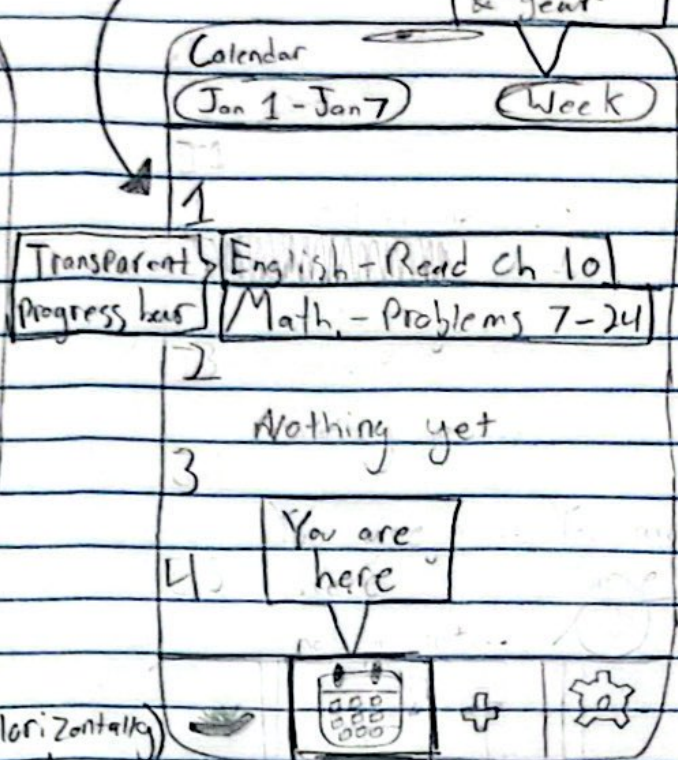 & year
Calendar
Jan 1 - Jan 7
Week
1
Transparent
progress bar
English - Read ch 10
Math - Problems 7-24
2
Nothing yet
3
You are
here
4
lorizontally)